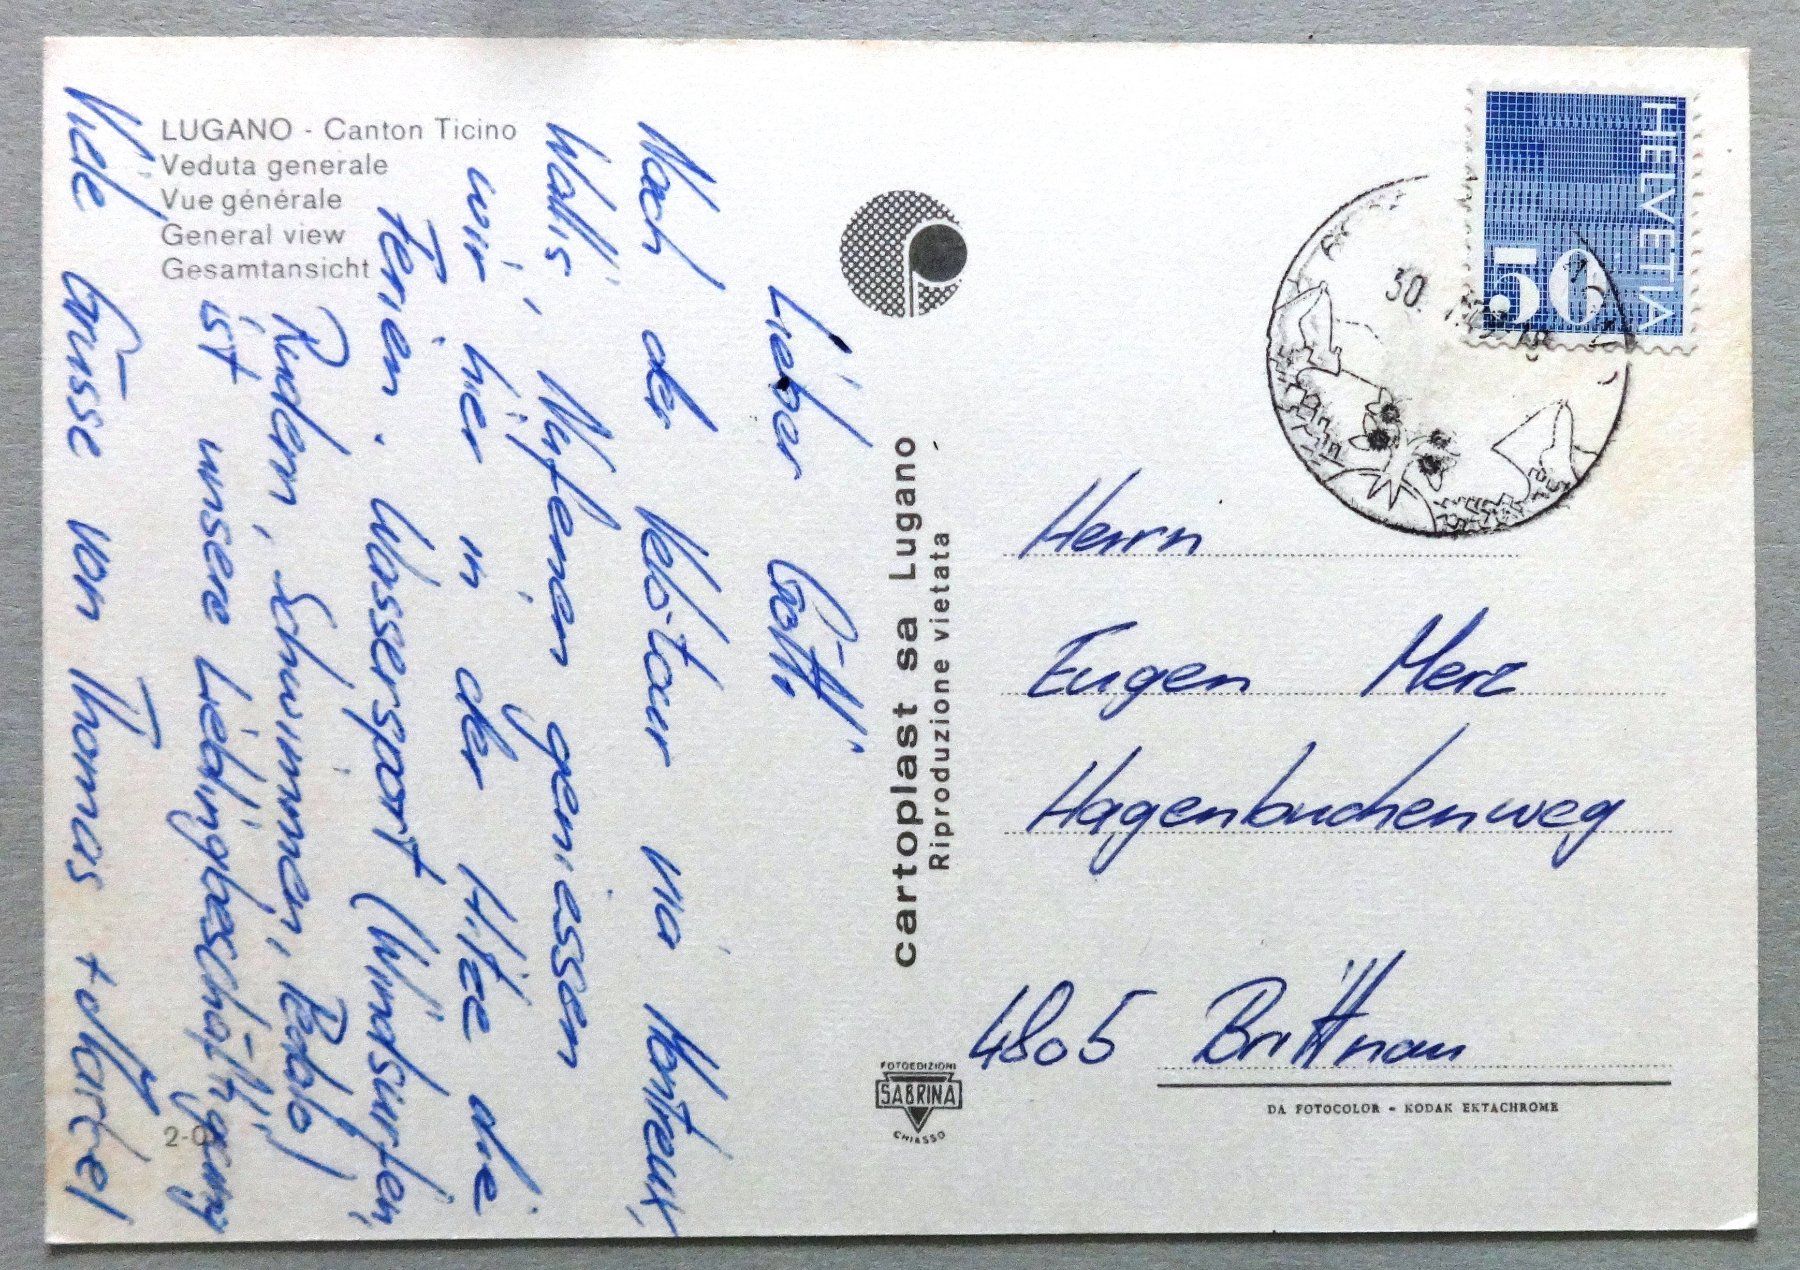 LUGANO - Canton Ticino
Veduta generale
Vue générale
General view
Gesamtansicht
Lieber Götti
Nach der Velotour via Montreux,
Wallis, Nufenen geniessen
wir hier in der Hitze die
Ferien. Wassersport (Windsurfen,
Rudern, Schwimmen, Pedalo)
ist unsere Lieblingsbeschäftigung
Viele Grüsse von Thomas +
cartoplast sa Lugano
Riproduzione vietata
FOTOEDIZIONI
SABRINA
CHIASSO
HELVETIA
50
30.
Herrn
Eugen Merz
Hagenbuchenweg
4805 Brittnau
DA FOTOCOLOR - KODAK EKTACHROME